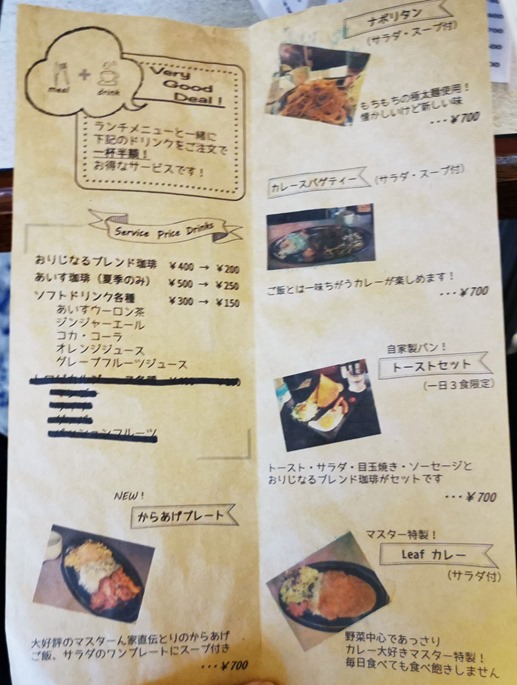 meal + drink
Very
Good
Deal!
ランチメニューと一緒に
下記のドリンクをご注文で
一杯半額！
お得なサービスです！
Service Price Drinks
おりじなるブレンド珈琲 ¥400 → ¥200
あいす珈琲（夏季のみ） ¥500 → ¥250
ソフトドリンク各種 ¥300 → ¥150
あいすウーロン茶
ジンジャーエール
コカ・コーラ
オレンジジュース
グレープフルーツジュース
パッションフルーツ
NEW!
からあげプレート
大好評のマスターん家直伝とりのからあげ
ご飯、サラダのワンプレートにスープ付き
・・・¥700
ナポリタン
（サラダ・スープ付）
もちもちの極太麺使用！
懐かしいけど新しい味
・・・¥700
カレースパゲティー （サラダ・スープ付）
ご飯とは一味ちがうカレーが楽しめます！
・・・¥700
自家製パン！
トーストセット
（一日３食限定）
トースト・サラダ・目玉焼き・ソーセージと
おりじなるブレンド珈琲がセットです
・・・¥700
マスター特製！
Leaf カレー
（サラダ付）
野菜中心であっさり
カレー大好きマスター特製！
毎日食べても食べ飽きしません